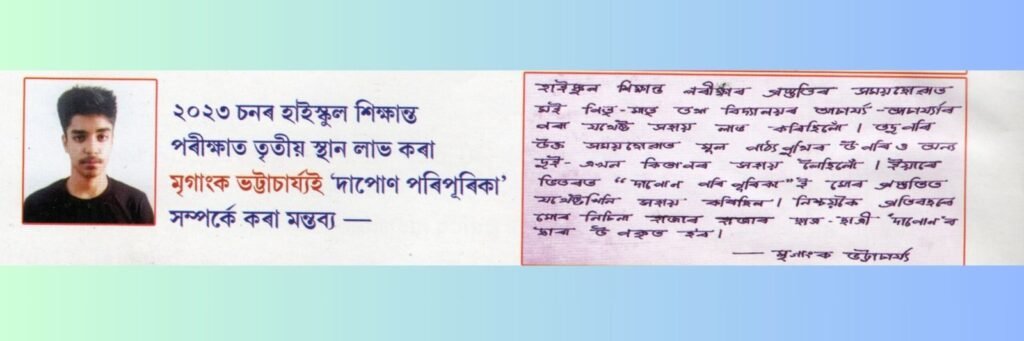 ২০২৩ চনৰ হাইস্কুল শিক্ষান্ত
পৰীক্ষাত তৃতীয় স্থান লাভ কৰা
মৃগাংক ভট্টাচাৰ্য্যই ‘দাপোণ পৰিপূৰিকা’
সম্পৰ্কে কৰা মন্তব্য —
হাইস্কুল শিক্ষান্ত পৰীক্ষাৰ প্ৰস্তুতিৰ সময়ছোৱাত
মই পিতৃ-মাতৃ তথা বিদ্যালয়ৰ আচাৰ্য্য-আচাৰ্য্যাৰ
পৰা যথেষ্ট সহায় লাভ কৰিছিলোঁ। তদুপৰি
উক্ত সময়ছোৱাত মূল পাঠ্যপুথিৰ উপৰিও অন্য
দুই-এখন কিতাপৰ সহায় লৈছিলোঁ। ইয়াৰে
ভিতৰত “দাপোন পৰিপূৰিকা”ই মোৰ প্ৰস্তুতিত
যথেষ্টখিনি সহায় কৰিছিল। নিশ্চয়কৈ অতিবছৰে
মোৰ নিচিনা হাজাৰ হাজাৰ ছাত্ৰ-ছাত্ৰী ‘দাপোন’ৰ
দ্বাৰা উপকৃত হ'ব।
— মৃগাংক ভট্টাচাৰ্য্য